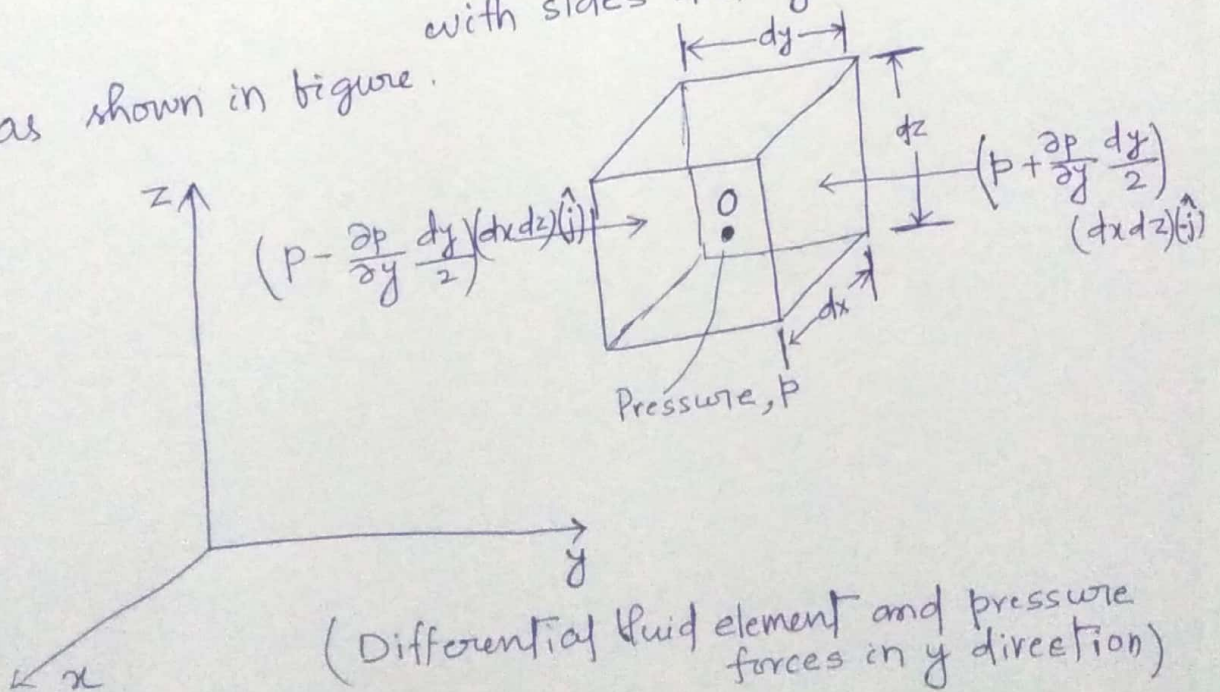 with sides
as shown in figure.
dy
dz
z
(p - ∂p/∂y dy/2)(dxdz)(ĵ)
O
(p + ∂p/∂y dy/2)
(dxdz)(-ĵ)
dx
Pressure, p
y
x
(Differential fluid element and pressure
forces in y direction)